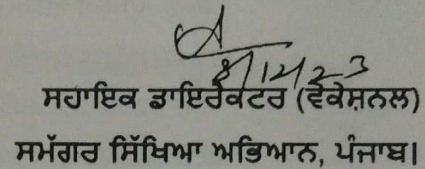 8/12/23
ਸਹਾਇਕ ਡਾਇਰੈਕਟਰ (ਵੋਕੇਸ਼ਨਲ)
ਸਮੱਗਰ ਸਿੱਖਿਆ ਅਭਿਆਨ, ਪੰਜਾਬ।